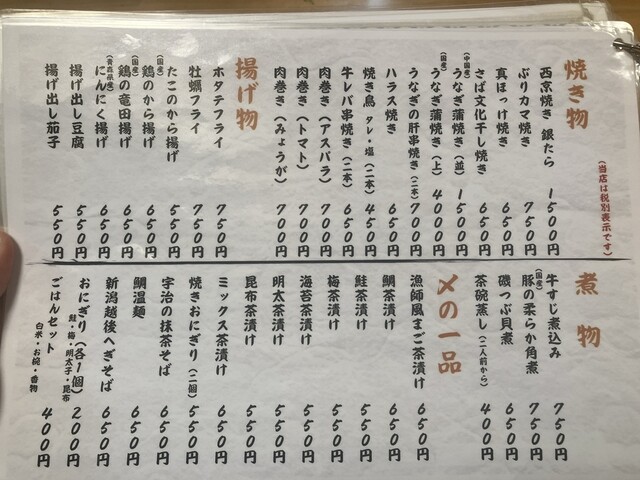 焼き物
(当店は税別表示です)
西京焼き 銀たら 1500円
ぶりカマ焼き 750円
真ほっけ焼き 650円
さば文化干し焼き 650円
(中国産)
うなぎ蒲焼き(並) 1500円
(国産)
うなぎ蒲焼き(上) 4000円
うなぎの肝串焼き(二本) 700円
ハラス焼き 650円
焼き鳥 タレ・塩(二本) 450円
牛レバ串焼き(二本) 650円
肉巻き(アスパラ) 700円
肉巻き(トマト) 700円
肉巻き(みょうが) 700円
揚げ物
ホタテフライ 750円
牡蠣フライ 750円
たこのから揚げ 550円
(国産)
鶏のから揚げ 650円
(国産)
鶏の竜田揚げ 650円
(青森県産)
にんにく揚げ 650円
揚げ出し豆腐 550円
揚げ出し茄子 550円
煮物
牛すじ煮込み 750円
(国産)
豚の柔らか角煮 750円
磯つぶ貝煮 650円
茶碗蒸し(二人前から) 400円
〆の一品
漁師風まご茶漬け 650円
鯛茶漬け 650円
鮭茶漬け 550円
梅茶漬け 550円
海苔茶漬け 550円
明太茶漬け 550円
昆布茶漬け 550円
ミックス茶漬け 650円
焼きおにぎり(二個) 550円
宇治の抹茶そば 650円
鯛温麺 650円
新潟越後へぎそば 650円
おにぎり(各1個) 200円
鮭・梅・明太子・昆布
ごはんセット 400円
白米・お椀・香物